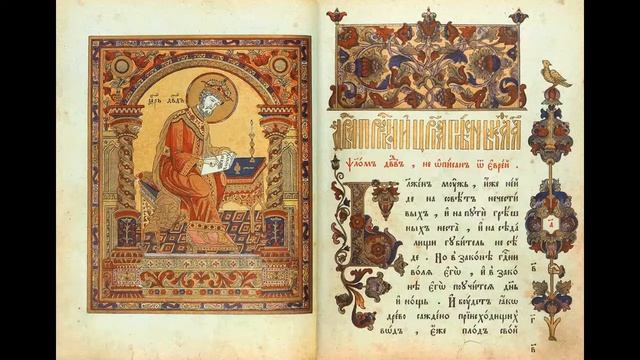 Црь Двдъ
Ѱаломъ двдвъ, не ѡписан ѿ еврей.
Блаженъ моужъ, иже не и
де на совѣтъ нечести
выхъ, и на пути грѣш
ныхъ не ста, и на сѣда
лищи губитель не сѣ
де. Но в законѣ гд҃ни
воля егѡ, и в зако
нѣ егѡ поучится дн҃ь
и нощь. И боудетъ ꙗкѡ
древо саждено при исходищихъ
водъ, еже плодъ свой